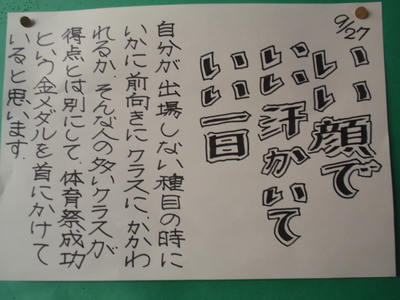 9/27
いい顔で
いい汗かいて
いい一日
自分が出場しない種目の時に
いかに前向きにクラスに、かかわ
れるか、そんな人の多いクラスが
得点とは別にして、体育祭成功
という金メダルを首にかけて
いると思います.